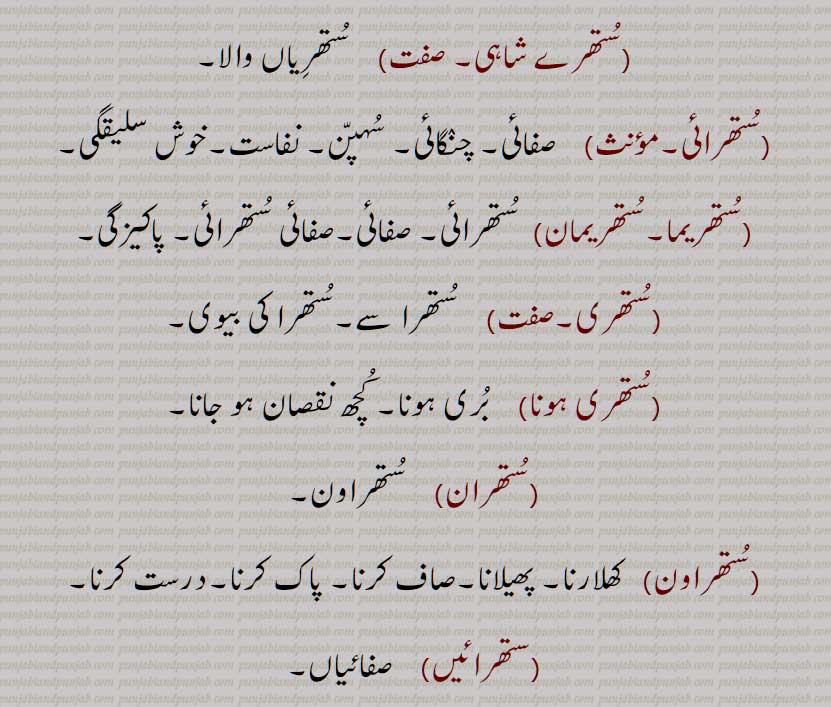 (سُتھرے شاہی۔ صفت) سُتھرِیاں والا۔
(سُتھرائی۔مؤنث) صفائی۔ چنگائی۔ سُہپّن۔ نفاست۔خوش سلیقگی۔
(سُتھریما۔سُتھریمان) سُتھرائی۔ صفائی۔صفائی سُتھرائی۔ پاکیزگی۔
(سُتھری۔صفت) سُتھرا سے۔سُتھرا کی بیوی۔
(سُتھری ہونا) بُری ہونا۔ کُچھ نقصان ہو جانا۔
(سُتھران) سُتھراون۔
(سُتھراون) کھلارنا۔ پھیلانا۔صاف کرنا۔ پاک کرنا۔درست کرنا۔
(ستھرائیں) صفائیاں۔